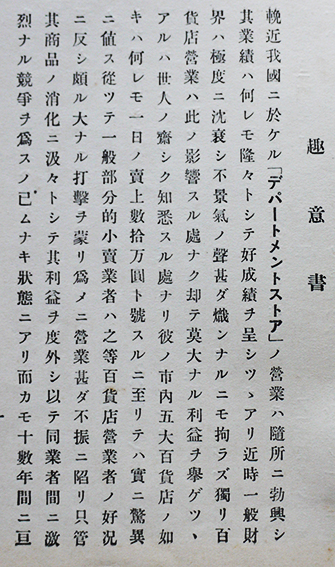 趣意書
輓近我國ニ於ケル「デパートメントストア」ノ營業ハ隨所ニ勃興シ
其業績ハ何レモ隆々トシテ好成績ヲ呈シツヽアリ近時一般財
界ハ極度ニ沈衰シ不景氣ノ聲甚ダ熾ンナルニモ拘ラズ獨リ百
貨店營業ハ此ノ影響スル處ナク却テ莫大ナル利益ヲ擧ゲツヽ
アルハ世人ノ齋シク知悉スル處ナリ彼ノ市內五大百貨店ノ如
キハ何レモ一日ノ賣上數拾万圓ト號スルニ至リテハ實ニ驚異
ニ値ス從ツテ一般部分的小賣業者ハ之等百貨店營業者ノ好況
ニ反シ頗ル大ナル打擊ヲ蒙リ爲メニ營業甚ダ不振ニ陷リ只管
其商品ノ消化ニ汲々トシテ其利益ヲ度外シ以テ同業者間ニ激
烈ナル競爭ヲ爲スノ已ムナキ狀態ニアリ而カモ十數年間ニ亘